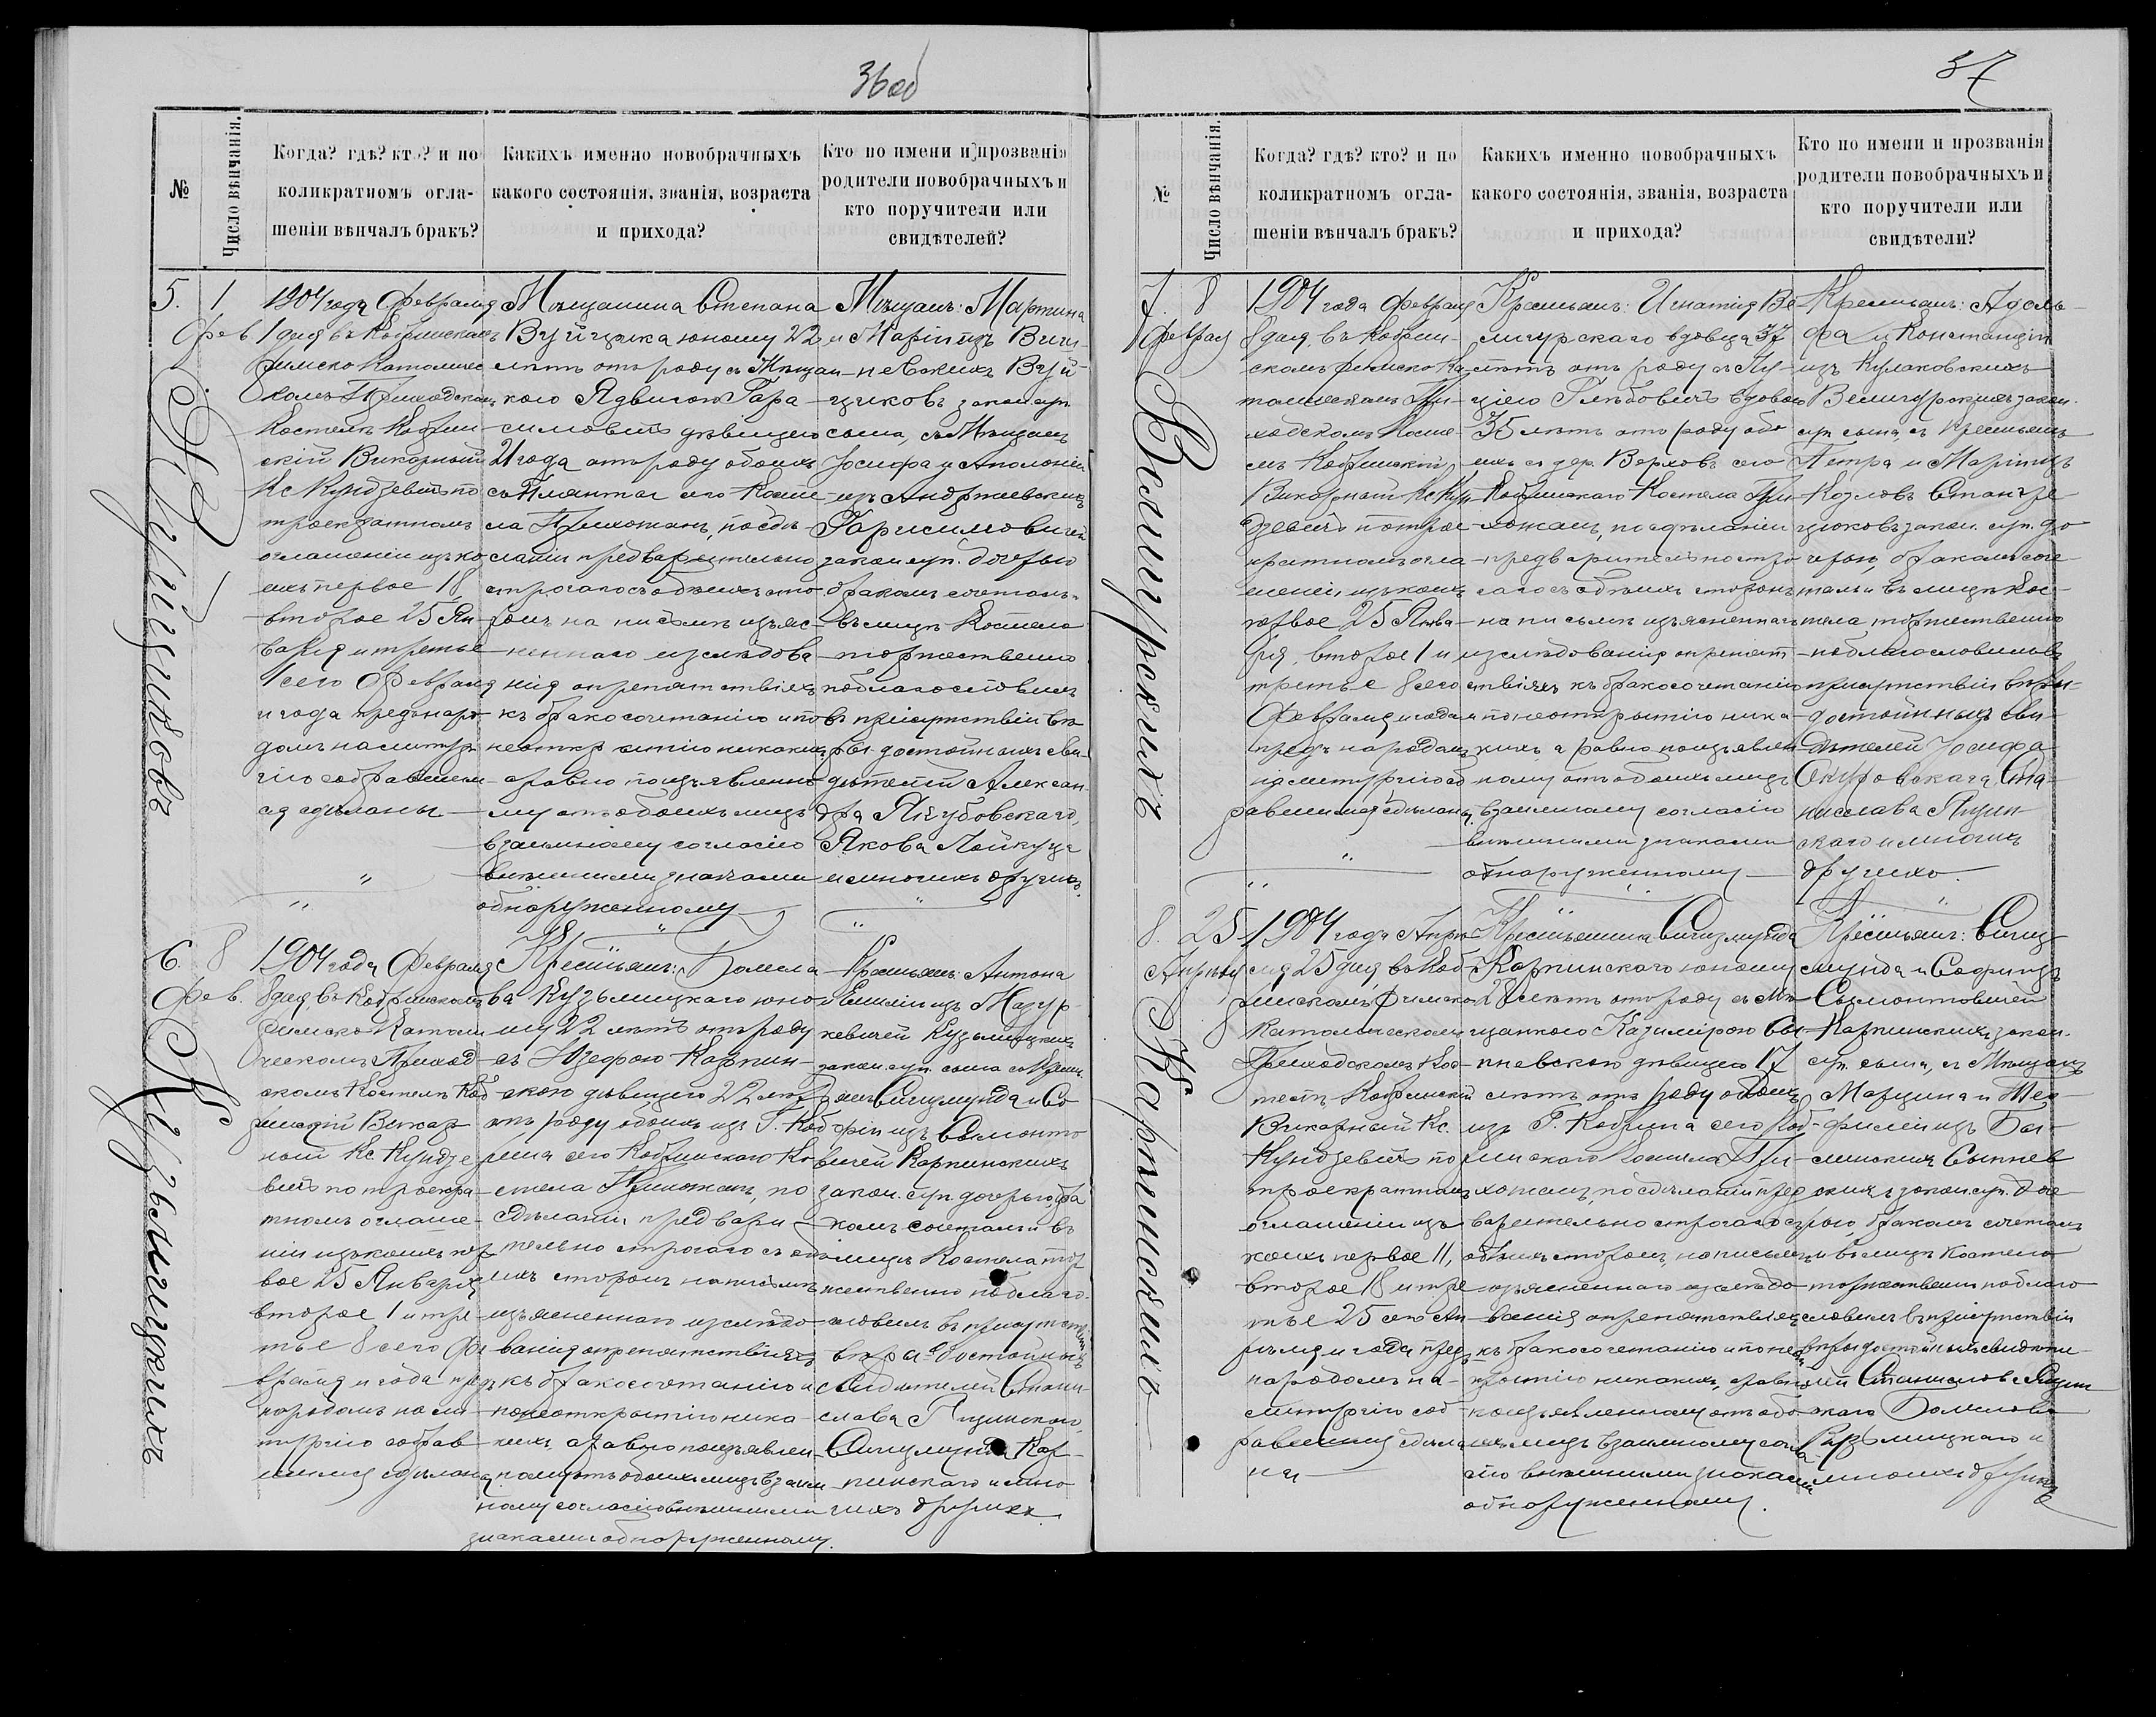 36об
№
Число вѣнчанія.
Когда? гдѣ? кто? и по
коликратномъ огла-
шеніи вѣнчалъ бракъ?
Какихъ именно новобрачныхъ
какого состоянія, званія, возраста
и прихода?
Кто по имени и прозванія
родители новобрачныхъ и
кто поручители или
свидѣтелей?
5.
1
Фев.
Вуйциковъ
1904 года Февраля
1 дня въ Кобринскомъ
Римско Католичес
комъ Приходскомъ
Костелѣ Кобрин-
скій Викарный
Кс Кундзевичъ по
троекратномъ
оглашеніи изъ ко
ихъ первое 18,
второе 25 Ян-
варя и третье
1 сего Февраля
и года предъ наро-
домъ на литур
гію собравшим
ся сдѣланы
Мѣщанина Степана
Вуйцика юношу 22
лѣтъ отъ роду съ Мѣщан-
кою Ядвигою Гара-
симовичъ дѣвицею
21 года отъ роду обоихъ
сего Косте-
ла Прихожанъ, по сдѣ-
ланіи предварительно
строгаго съ обѣихъ сто-
ронъ на письмѣ изъяс-
неннаго изслѣдова
нія о препятствіяхъ
къ бракосочетанію и по
неоткрытію никакихъ,
а равно по изъявленно
му отъ обоихъ лицъ
взаимному согласію
внѣшними знаками
обнаруженному
Мѣщанъ: Мартина
и Маріи изъ Виш-
невскихъ Вуй-
циковъ закон. суп.
сына, съ Мѣщанъ
Іосифа и Аполоніи
изъ Андржеевскихъ
Гарисимовичей
закон. суп. дочерью
бракомъ сочеталъ и
въ лицѣ Костела
торжественно
поблагословилъ
въ присутствіи вѣ
ры достойныхъ сви-
дѣтелей Алексан
дра Якубовскаго,
Якова Пойкуца
и многихъ другихъ.
6.
8
Фев.
Кузьмицкихъ
1904 года Февраля
8 дня въ Кобринскомъ
Римско Католи
ческомъ Приход
скомъ Костелѣ Коб
ринскій Викар
ный Кс Кундзе
вичъ по троекра
тномъ оглаше-
ніи изъ коихъ пер
вое 25 Января
второе 1 и тре
тье 8 сего Фе
враля и года предъ
народомъ на ли-
тургію собрав
шимся сдѣланы
Крестьян: Болесла
ва Кузьмицкаго юно
шу 22 лѣтъ отъ роду
съ Юзефою Карпин-
скою дѣвицею 22 лѣтъ
отъ роду обоихъ изъ Г. Коб
рина сего Кобринскаго Ко
стела Прихожанъ, по
сдѣланіи предвари
тельно строгаго съ обѣ
ихъ сторонъ на письмѣ
изъясненнаго изслѣдо
ванія о препятствіяхъ
къ бракосочетанію и
по неоткрытію ника-
кихъ, а равно по изъявлен
ному отъ обоихъ лицъ взаим
ному согласію внѣшними
знаками обнаруженному.
Крестьян: Антона
и Емиліи изъ Мазур-
кевичей Кузьмицкихъ
закон. суп. сына съ Крест.
Сигизмунда и Со
фіи изъ Сымонто
вичей Карпинскихъ
закон. суп. дочерью, бра
комъ сочеталъ и въ
лицѣ Костела тор
жественно поблаго
словилъ въ присутствіи
вѣры достойныхъ
свидѣтелей Стани
слава
Сигизмунда Кар-
пинскаго и мно
гихъ другихъ.
37
№
Число вѣнчанія.
Когда? гдѣ? кто? и по
коликратномъ огла-
шеніи вѣнчалъ бракъ?
Какихъ именно новобрачныхъ
какого состоянія, званія, возраста
и прихода?
Кто по имени и прозванія
родители новобрачныхъ и
кто поручители или
свидѣтели?
7.
8
Февраля
Велигурскихъ
1904 года Февраля
8 дня, въ Кобрин-
скомъ Римско Ка
толическомъ При-
ходскомъ Косте-
лѣ Кобринскій
Викарный Кс Кун
дзевичъ по трое-
кратномъ огла-
шеніи, изъ коихъ
первое 25 Янва-
ря, второе 1 и
третье 8 сего
Февраля и года
предъ народомъ
на литургію со
бравшимся сдѣланы
Крестьян: Игнатія Ве
лигурскаго вдовца 37
лѣтъ отъ роду съ Лу-
ціею Глѣбовичъ вдовою
35 лѣтъ отъ роду обо
ихъ съ дер. Верховъ сего
Кобринскаго Костела При
хожанъ, по сдѣланіи
предварительно стро
гаго съ обѣихъ сторонъ
на письмѣ изъясненнаго
изслѣдованія о препят
ствіяхъ къ бракосочетанію
и по неоткрытію ника-
кихъ, а равно по изъявлен
ному отъ обоихъ лицъ
взаимному согласію
внѣшними знаками
обнаруженному
Крестьян: Адоль-
фа и Констанціи
изъ Кулаковскихъ
Велигурскихъ закон.
суп. сына, съ Крестьянъ
Петра и Маріи изъ
Козловъ
закон. суп. до
черью, бракомъ соче-
талъ и въ лицѣ Кос-
тела торжественно
поблагословилъ въ
присутствіи вѣры
достойныхъ сви-
дѣтелей Іосифа
Ста-
нислава
скаго и многихъ
другихъ.
8.
25
Апрѣля
Карпинскихъ
1904 года Апрѣ
ля 25 дня въ Коб
ринскомъ Римско
Католическомъ
Приходскомъ Кос-
телѣ Кобринскій
Викарный Кс.
Кундзевичъ по
троекратномъ
оглашеніи изъ
коихъ первое 11,
второе 18 и тре
тье 25 сего Ап
рѣля и года предъ
народомъ на-
литургію соб
равшимся сдѣла
ны
Крестьянина Сигизмунда
Карпинскаго юношу
28 лѣтъ отъ роду съ Мѣ
щанкою Казимирою Сы-
пневскою дѣвицею 17
лѣтъ отъ роду обоихъ
изъ Г. Кобрина сего Коб-
ринскаго Костела При
хожанъ, по сдѣланіи пред
варительно строгаго съ
обѣихъ сторонъ, на письмѣ
изъясненнаго изслѣдо
ванія о препятствіяхъ
къ бракосочетанію и по неот
крытію никакихъ, а равно
по изъявленному отъ обо
ихъ лицъ взаимному согла
сію внѣшними знаками
обнаруженному.
Крестьян: Сигиз
мунда и Софіи изъ
Сымонтовичей
Карпинскихъ закон.
суп. сына, съ Мѣщанъ
Марцина и Тео-
филіи изъ
Сыпнев
скихъ закон. суп. доче
рью, бракомъ сочеталъ
и въ лицѣ Костела
торжественно поблаго
словилъ въ присутствіи
вѣры достойныхъ свидѣте
лей Станислава
скаго Болеслава
Кузьмицкаго и
многихъ другихъ